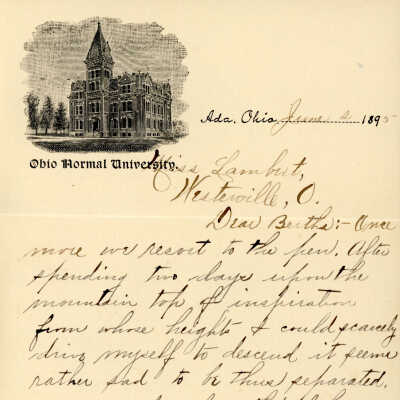 Ada, Ohio, June 4, 1895
Ohio Normal University.
Miss Lambert,
Westerville, O.
Dear Bertha:- Once
more we resort to the pen. After
spending two days upon the
mountain top of inspiration
from whose heights I could scarcely
drive myself to descend it seems
rather sad to be thus separated.